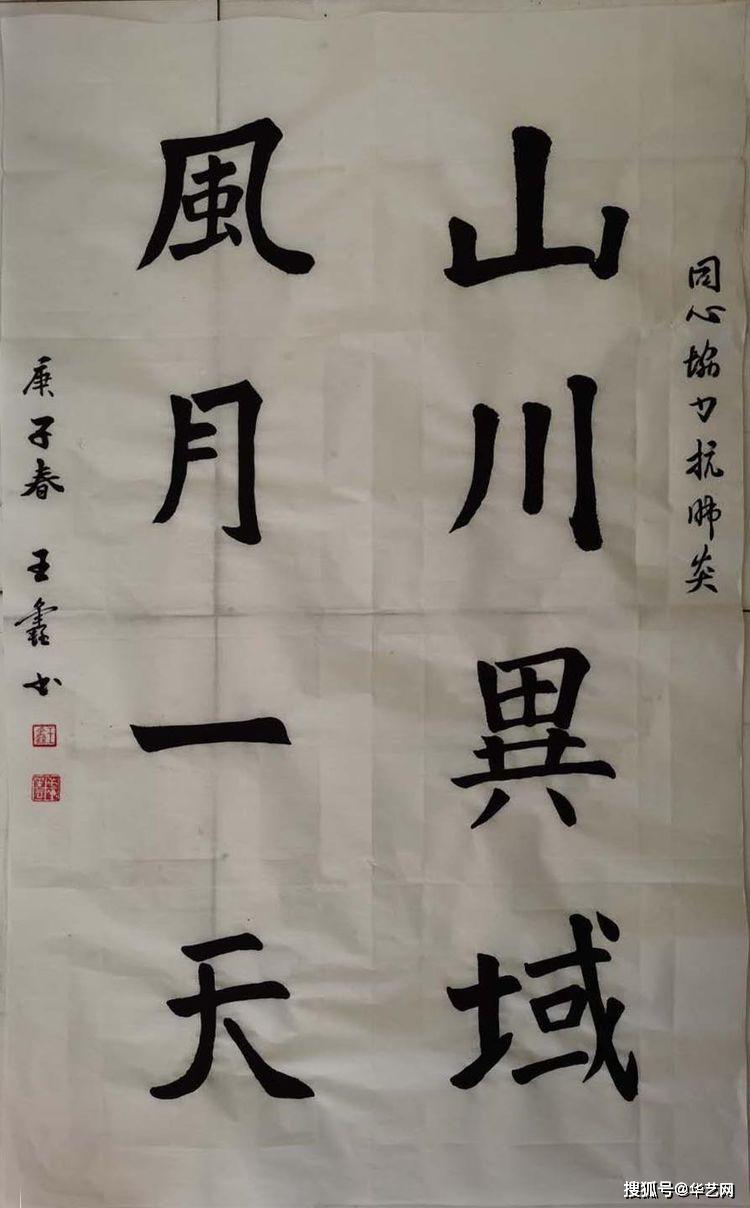 同心協力抗肺炎
山川異域
風月一天
庚子春 王鑫书
搜狐号@华艺网